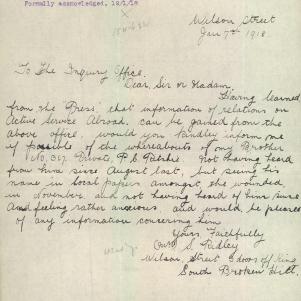 Formally acknowledged, 19/1/18
Wilson Street
Jan 7th 1918.
To The Inquiry Office.
Dear, Sir or Madam.
Having learned
from the Press, that information of relations on
Active Service Abroad. can be gained from the
above office. would you kindley inform me
if possible of the whereabouts of my Brother
No, Private, P. C. Not having heard
from him since August last, but seeing his
name in local papers amongst, the wounded,
in and not having heard of him since
And feeling rather anxious and would be pleased
of any information concerning him
Yours Faithfully
S.
Wilson, Street doors off King
South Broken Hill.